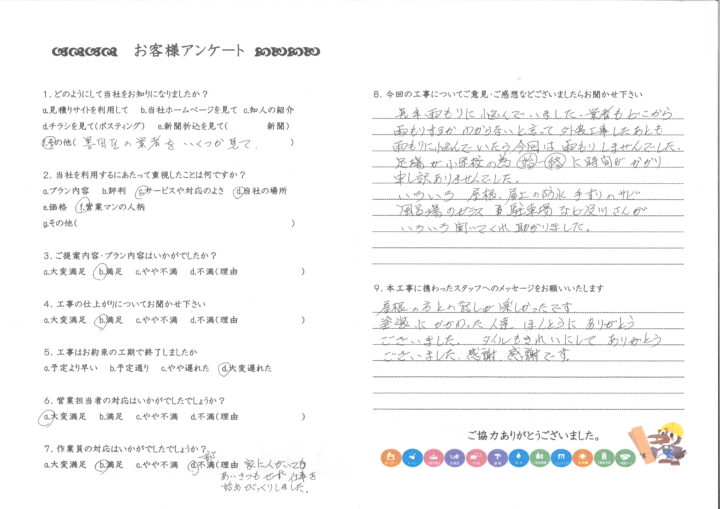 お客様アンケート
1. どのようにして当社をお知りになりましたか？
a.見積りサイトを利用して b.当社ホームページを見て c.知人の紹介
d.チラシを見て(ポスティング) e.新聞折込を見て( 新聞)
f.その他( 墨田区の業者をいくつか見て. )
2. 当社を利用するにあたって重視したことは何ですか？
a.プラン内容 b.評判 c.サービスや対応のよさ d.当社の場所
e.価格 f.営業マンの人柄
g.その他( )
3. ご提案内容・プラン内容はいかがでしたか？
a.大変満足 b.満足 c.やや不満 d.不満(理由 )
4. 工事の仕上がりについてお聞かせ下さい
a.大変満足 b.満足 c.やや不満 d.不満(理由 )
5. 工事はお約束の工期で終了しましたか
a.予定より早い b.予定通り c.やや遅れた d.大変遅れた
6. 営業担当者の対応はいかがでしたでしょうか？
a.大変満足 b.満足 c.やや不満 d.不満(理由 )
7. 作業員の対応はいかがでしたでしょうか？
a.大変満足 b.満足 c.やや不満 d.不満(理由 家に人がいても
あいさつもせず 仕事を
始めびっくりしました。 )
8. 今回の工事についてご意見・ご感想などございましたらお聞かせ下さい
長年雨もりに悩んでいました. 業者もどこから
雨もりするか わからないと言って 外装工事したあとも
雨もりに悩んでいたら今回は雨もりしませんでした.
足場が小学校の為 始 終 に時間がかかり
申し訳ありませんでした.
いろいろ 屋根、屋上の防水 手すりのサビ
風呂場のガラス 駐車場など及川さんが
いろいろ聞いてくれ 助かりました.
9. 本工事に携わったスタッフへのメッセージをお願いいたします
屋根の方との話しが楽しかったです
塗装にかかわった人達 ほんとうにありがとう
ございました. タイルもきれいにして ありがとう
ございました. 感謝 感謝です.
ご協力ありがとうございました。